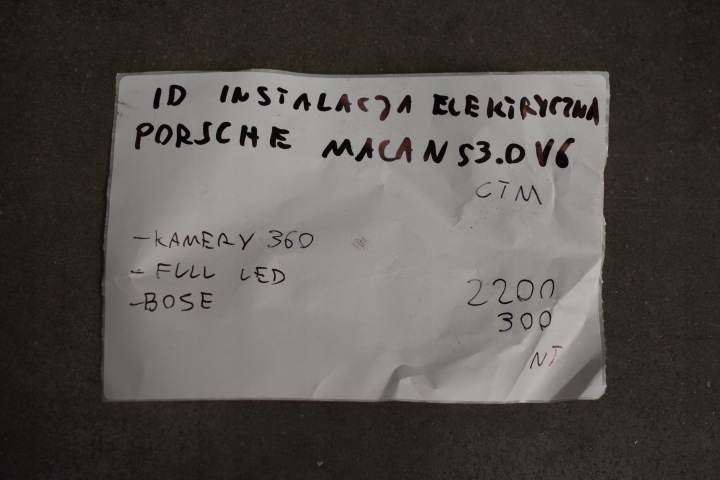 ID INSTALACJA ELEKTRYCZNA
PORSCHE MACAN S 3.0 V6
CTM
-KAMERY 360
- FULL LED
-BOSE
2200
300
NT